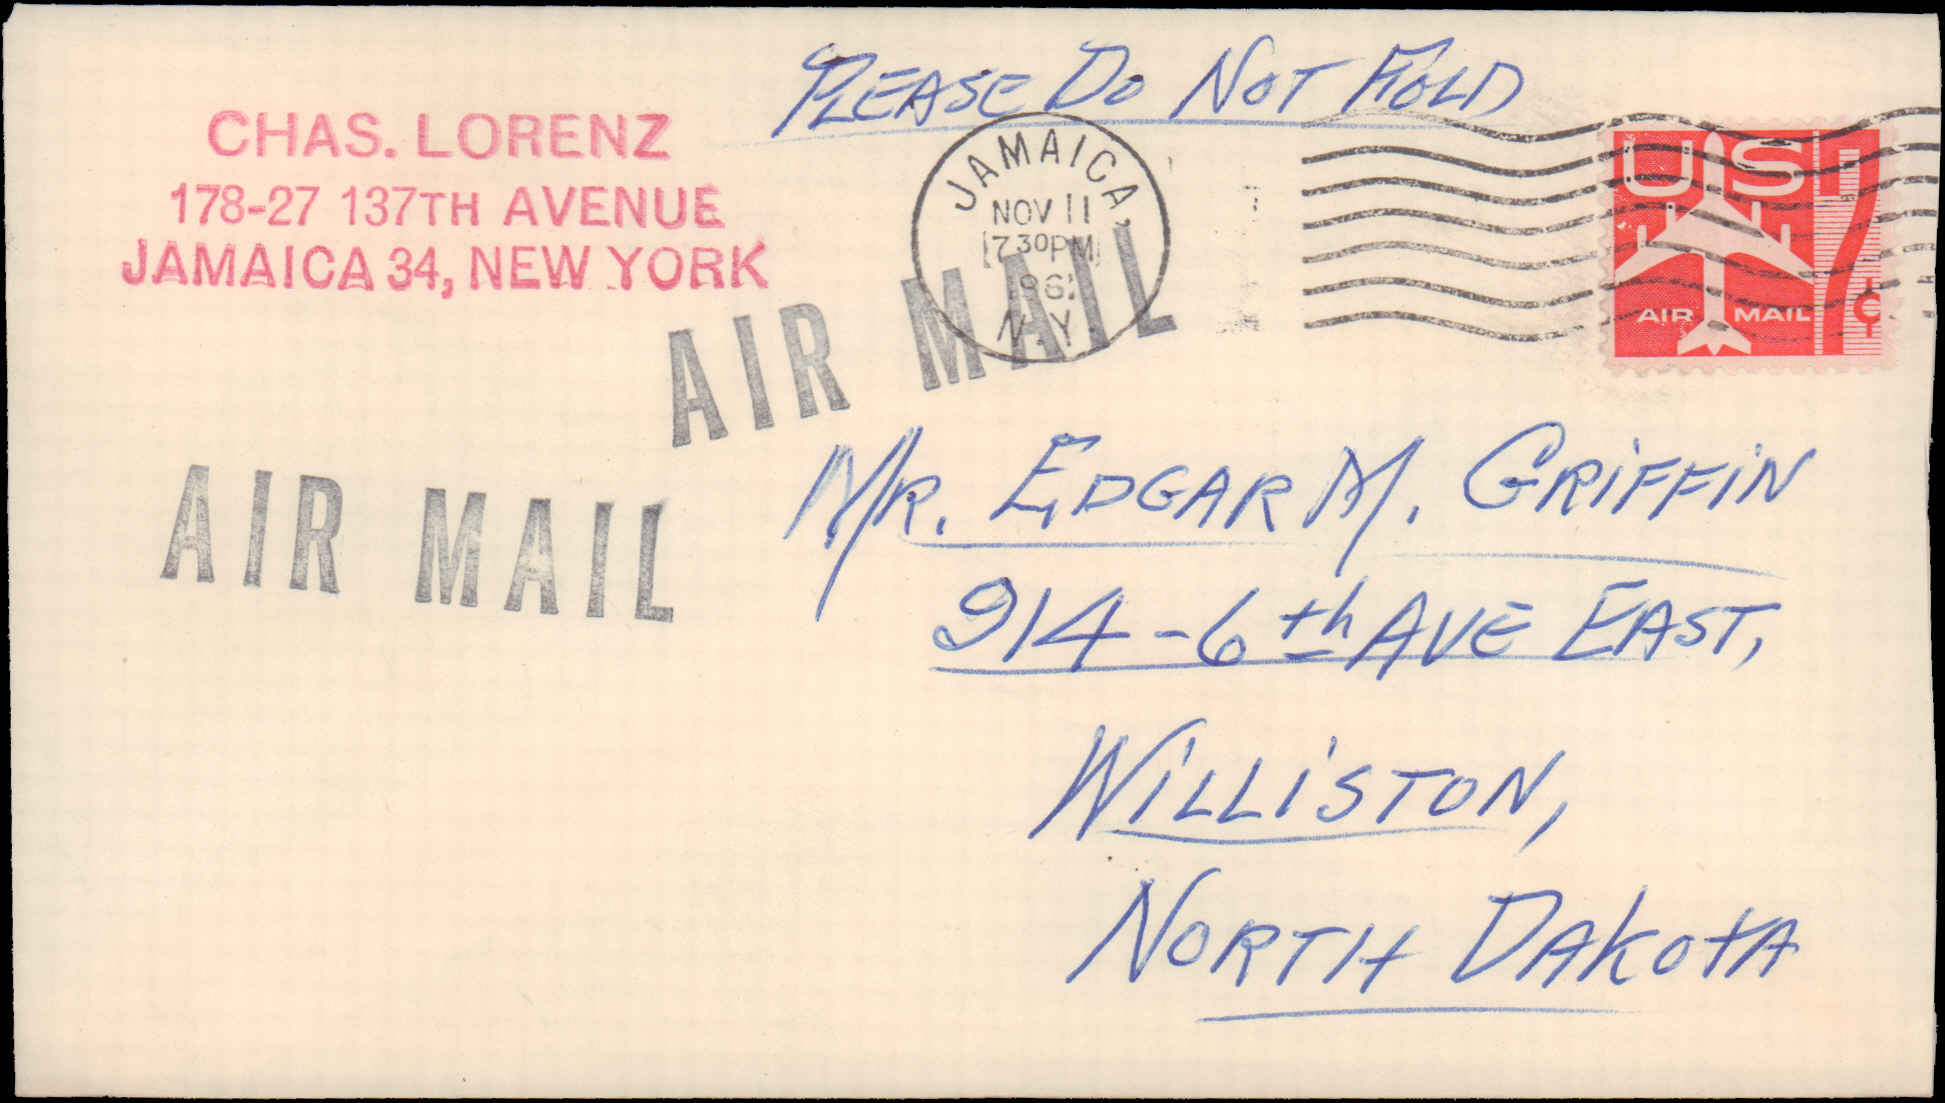 PLEASE DO NOT HOLD
CHAS. LORENZ
178-27 137TH AVENUE
JAMAICA 34, NEW YORK
JAMAICA,
NOV 11
730PM
N.Y.
US
7¢
AIR MAIL
AIR MAIL
AIR MAIL
MR. EDGAR M. GRIFFIN
914-6th AVE EAST,
WILLISTON,
NORTH DAKOTA